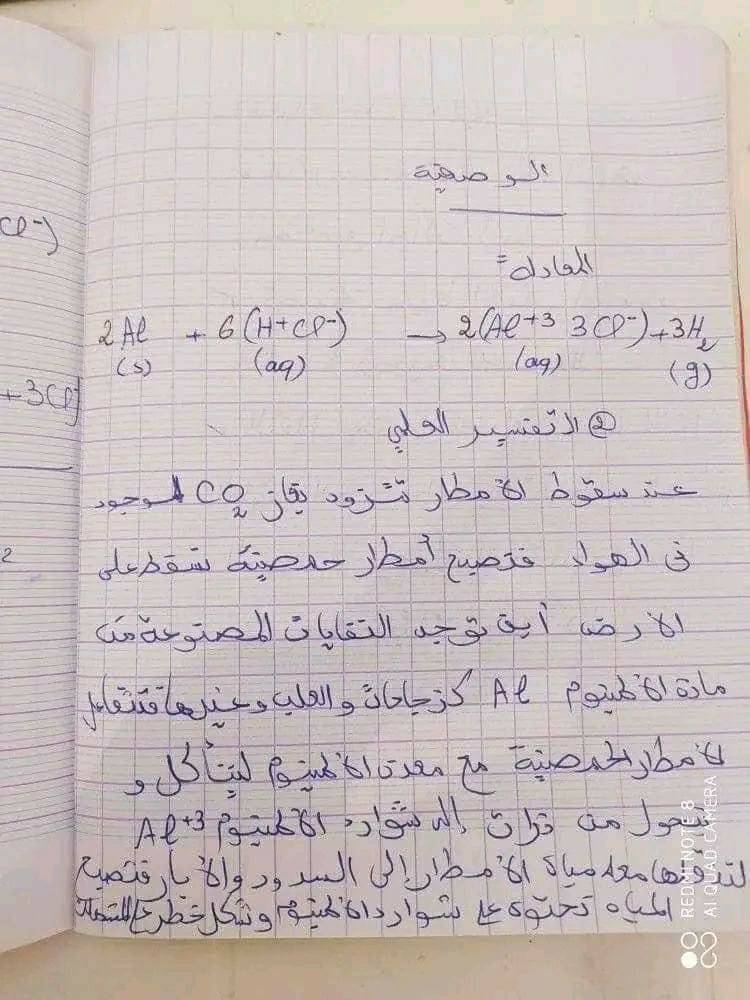 الوضعية
المعادلة=
2Al + 6(H+Cl-) → 2(Al+3 3Cl-) + 3H2
(s) (aq) (aq) (g)
② التفسير العلمي
عند سقوط الأمطار تتزود بغاز CO2 الموجود
في الهواء فتصبح أمطار حمضية تسقط على
الأرض أين توجد النفايات المصنوعة من
مادة الألمنيوم Al كزجاجات والعلب وغيرها فتتفاعل
الأمطار الحمضية مع معدن الألمنيوم ليتأكل و
يتحول من ذرات إلى شوارد الألمنيوم Al+3
معه مياه الأمطار إلى السدود والأبار فتصبح
المياه تحتوي على شوارد الألمنيوم وتشكل خطر على
Cl-)
+3Cl-
2
REDMI NOTE 8
AI QUAD CAMERA